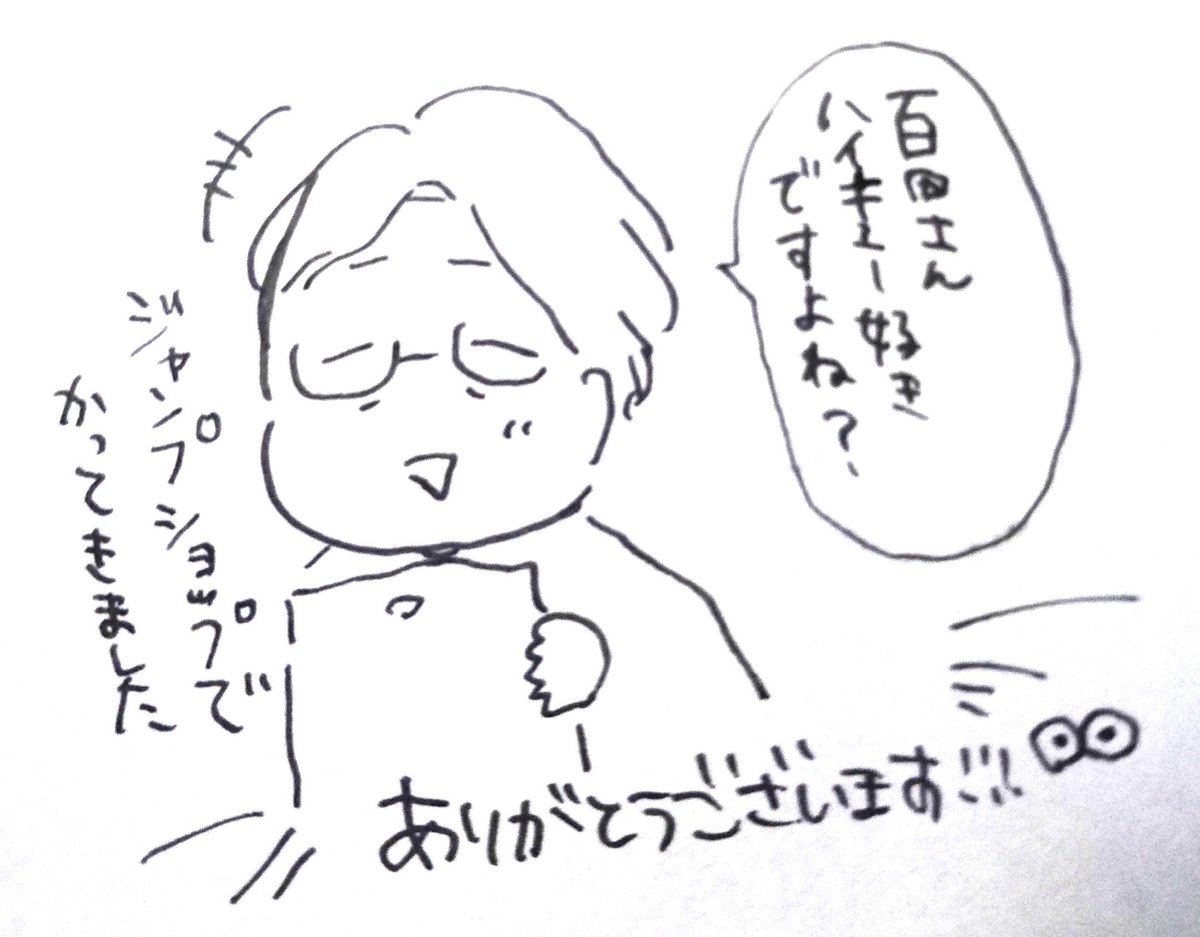 百田さん
ハイキュー好き
ですよね?
ジャンプショップで
かってきました
ありがとうございます!!!